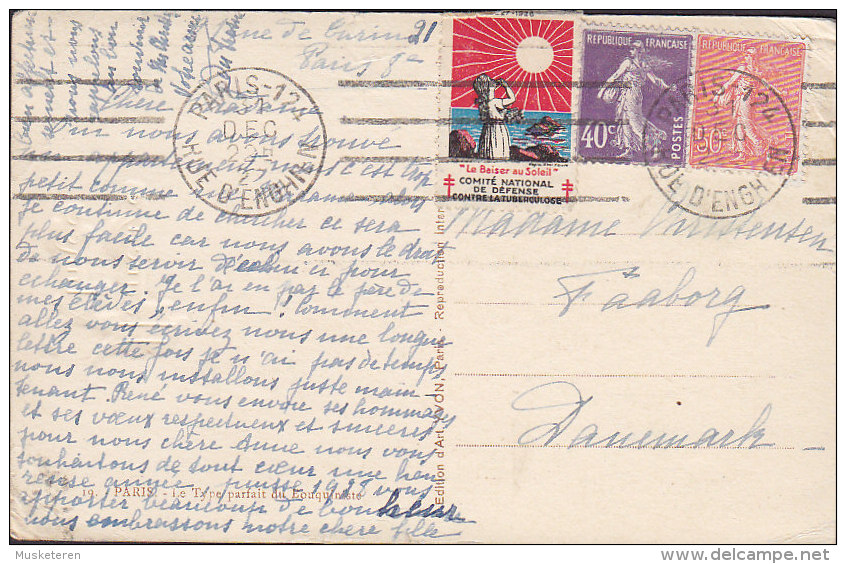 rue de Turin 21
Paris 8e
Chère Madame
Oui nous avons trouvé
un appartement
petit comme
je continue de chercher ce sera
plus facile car nous avons le droit
de nous servir de celui ci pour
echanger. Je l'ai eu par le père de
mes élèves, enfin! Comment
allez vous, écrivez nous une longue
lettre cette fois je n'ai pas de temps
nous nous installons juste main-
tenant. René vous envoie ses hommages
et ses vœux respectueux et sincères
pour nous chère Anne nous vous
souhaitons de tout cœur une heu-
reuse année, puisse 1928 vous
apporter beaucoup de bonheur
nous embrassons notre chère fille
19. PARIS. - Le Type parfait du Bouquiniste
Edition d'Art YVON, Paris - Reproduction Inter
PARIS-124
DEC
RUE D'ENGHIEN
"Le Baiser au Soleil"
COMITÉ NATIONAL
DE DÉFENSE
CONTRE LA TUBERCULOSE
RÉPUBLIQUE FRANÇAISE
40c
POSTES
RÉPUBLIQUE FRANÇAISE
50c
PARIS 124
RUE D'ENGHIEN
Madame
Faaborg
Danemark
Musketeren
delcampe.net